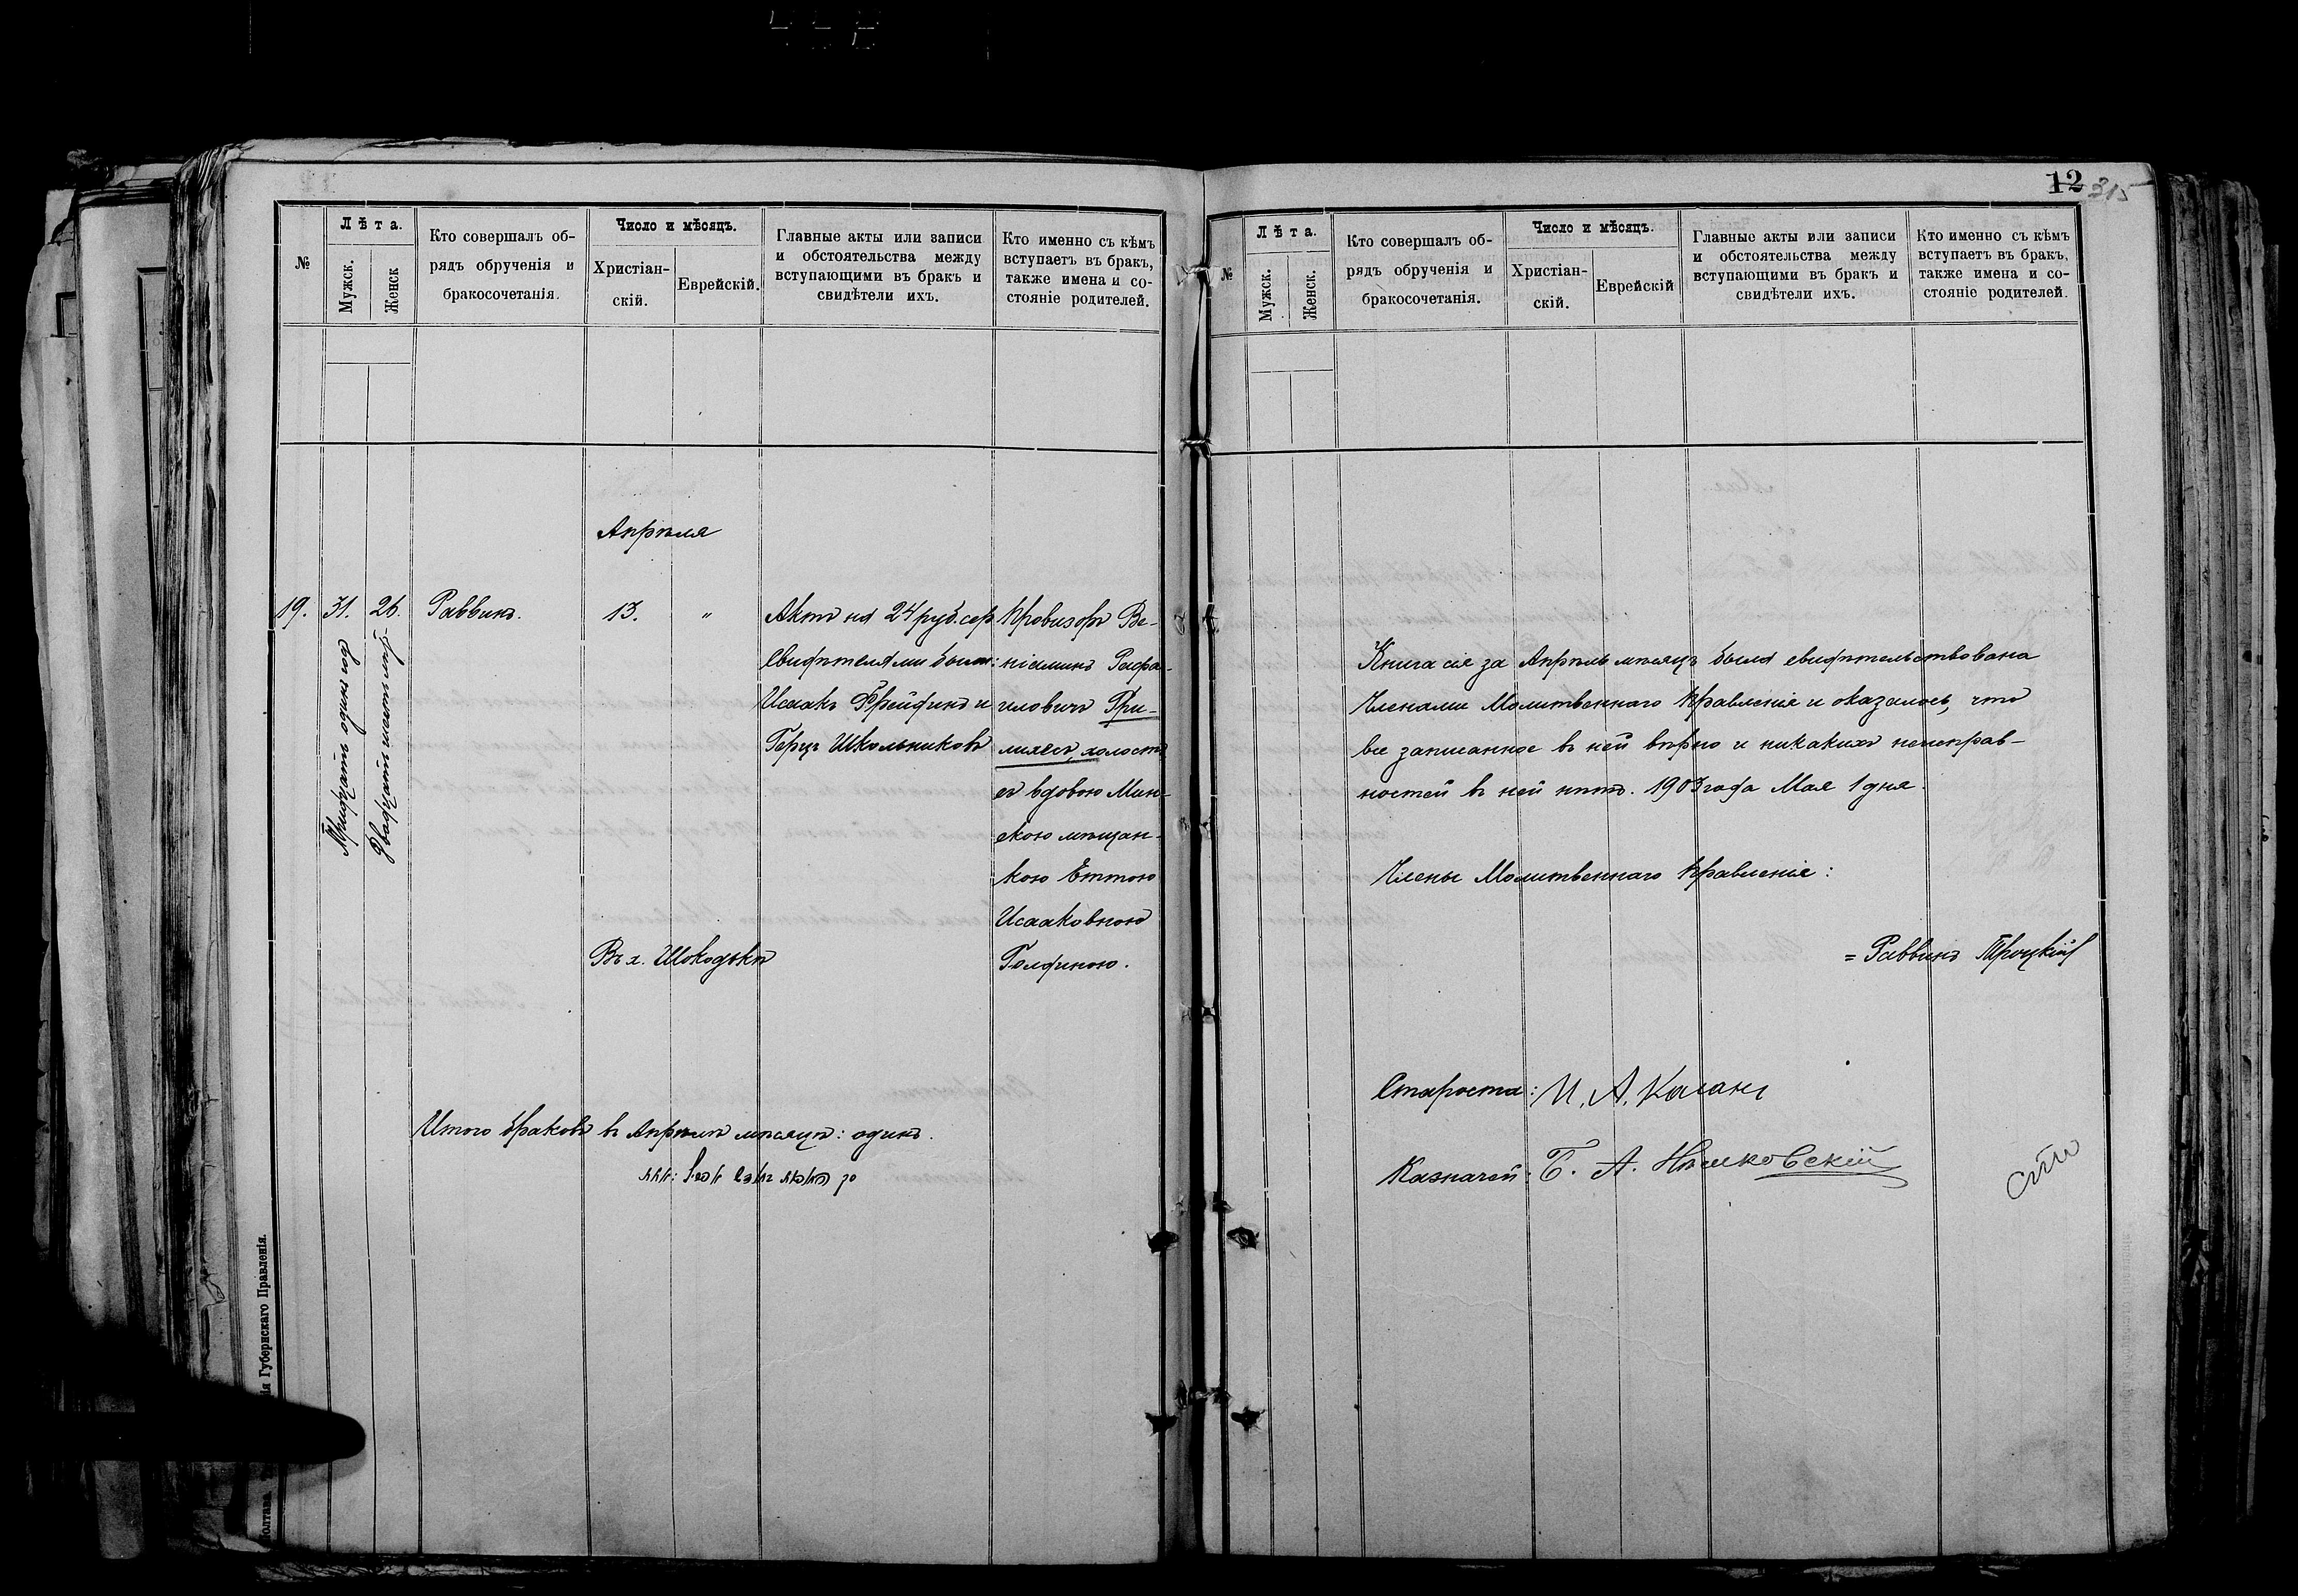 12 315
№
Лѣта.
Мужск.
Женск
Кто совершалъ об-
рядъ обрученія и
бракосочетанія.
Число и мѣсяцъ.
Христіан-
скій.
Еврейскій.
Главные акты или записи
и обстоятельства между
вступающими въ бракъ и
свидѣтели ихъ.
Кто именно съ кѣмъ
вступаетъ въ бракъ,
также имена и со-
стояніе родителей.
Апрѣля
19.
31.
Тридцать одинъ годъ
26.
Двадцать шесть лѣтъ
Раввинъ.
13.
"
Въ х.
Актъ на 24 руб. сер
Свидѣтелями были:
Исаакъ Фрейдинъ и
Герцъ Школьниковъ
Провизоръ Ве-
ніаминъ Рафа-
иловичъ Гри-
лихесъ, холостъ
съ вдовою Мин-
скою мѣщан-
кою Еттою
Исааковною
Голдиною.
Итого браковъ въ Апрѣлѣ мѣсяцѣ: одинъ.
Полтава.
Губернскаго Правленія.
№
Лѣта.
Мужск.
Женск.
Кто совершалъ об-
рядъ обрученія и
бракосочетанія.
Число и мѣсяцъ.
Христіан-
скій.
Еврейскій
Главные акты или записи
и обстоятельства между
вступающими въ бракъ и
свидѣтели ихъ.
Кто именно съ кѣмъ
вступаетъ въ бракъ,
также имена и со-
стояніе родителей.
Книга сія за Апрѣль мѣсяцъ была свидѣтельствована
Членами Молитвеннаго Правленія и оказалось, что
все записанное въ ней вѣрно и никакихъ неисправ-
ностей въ ней нѣтъ. 1903 года Мая 1 дня.
Члены Молитвеннаго Правленія:
= Раввинъ Троцкій
Староста: И. А. Каганъ
Казначей: Б. А.